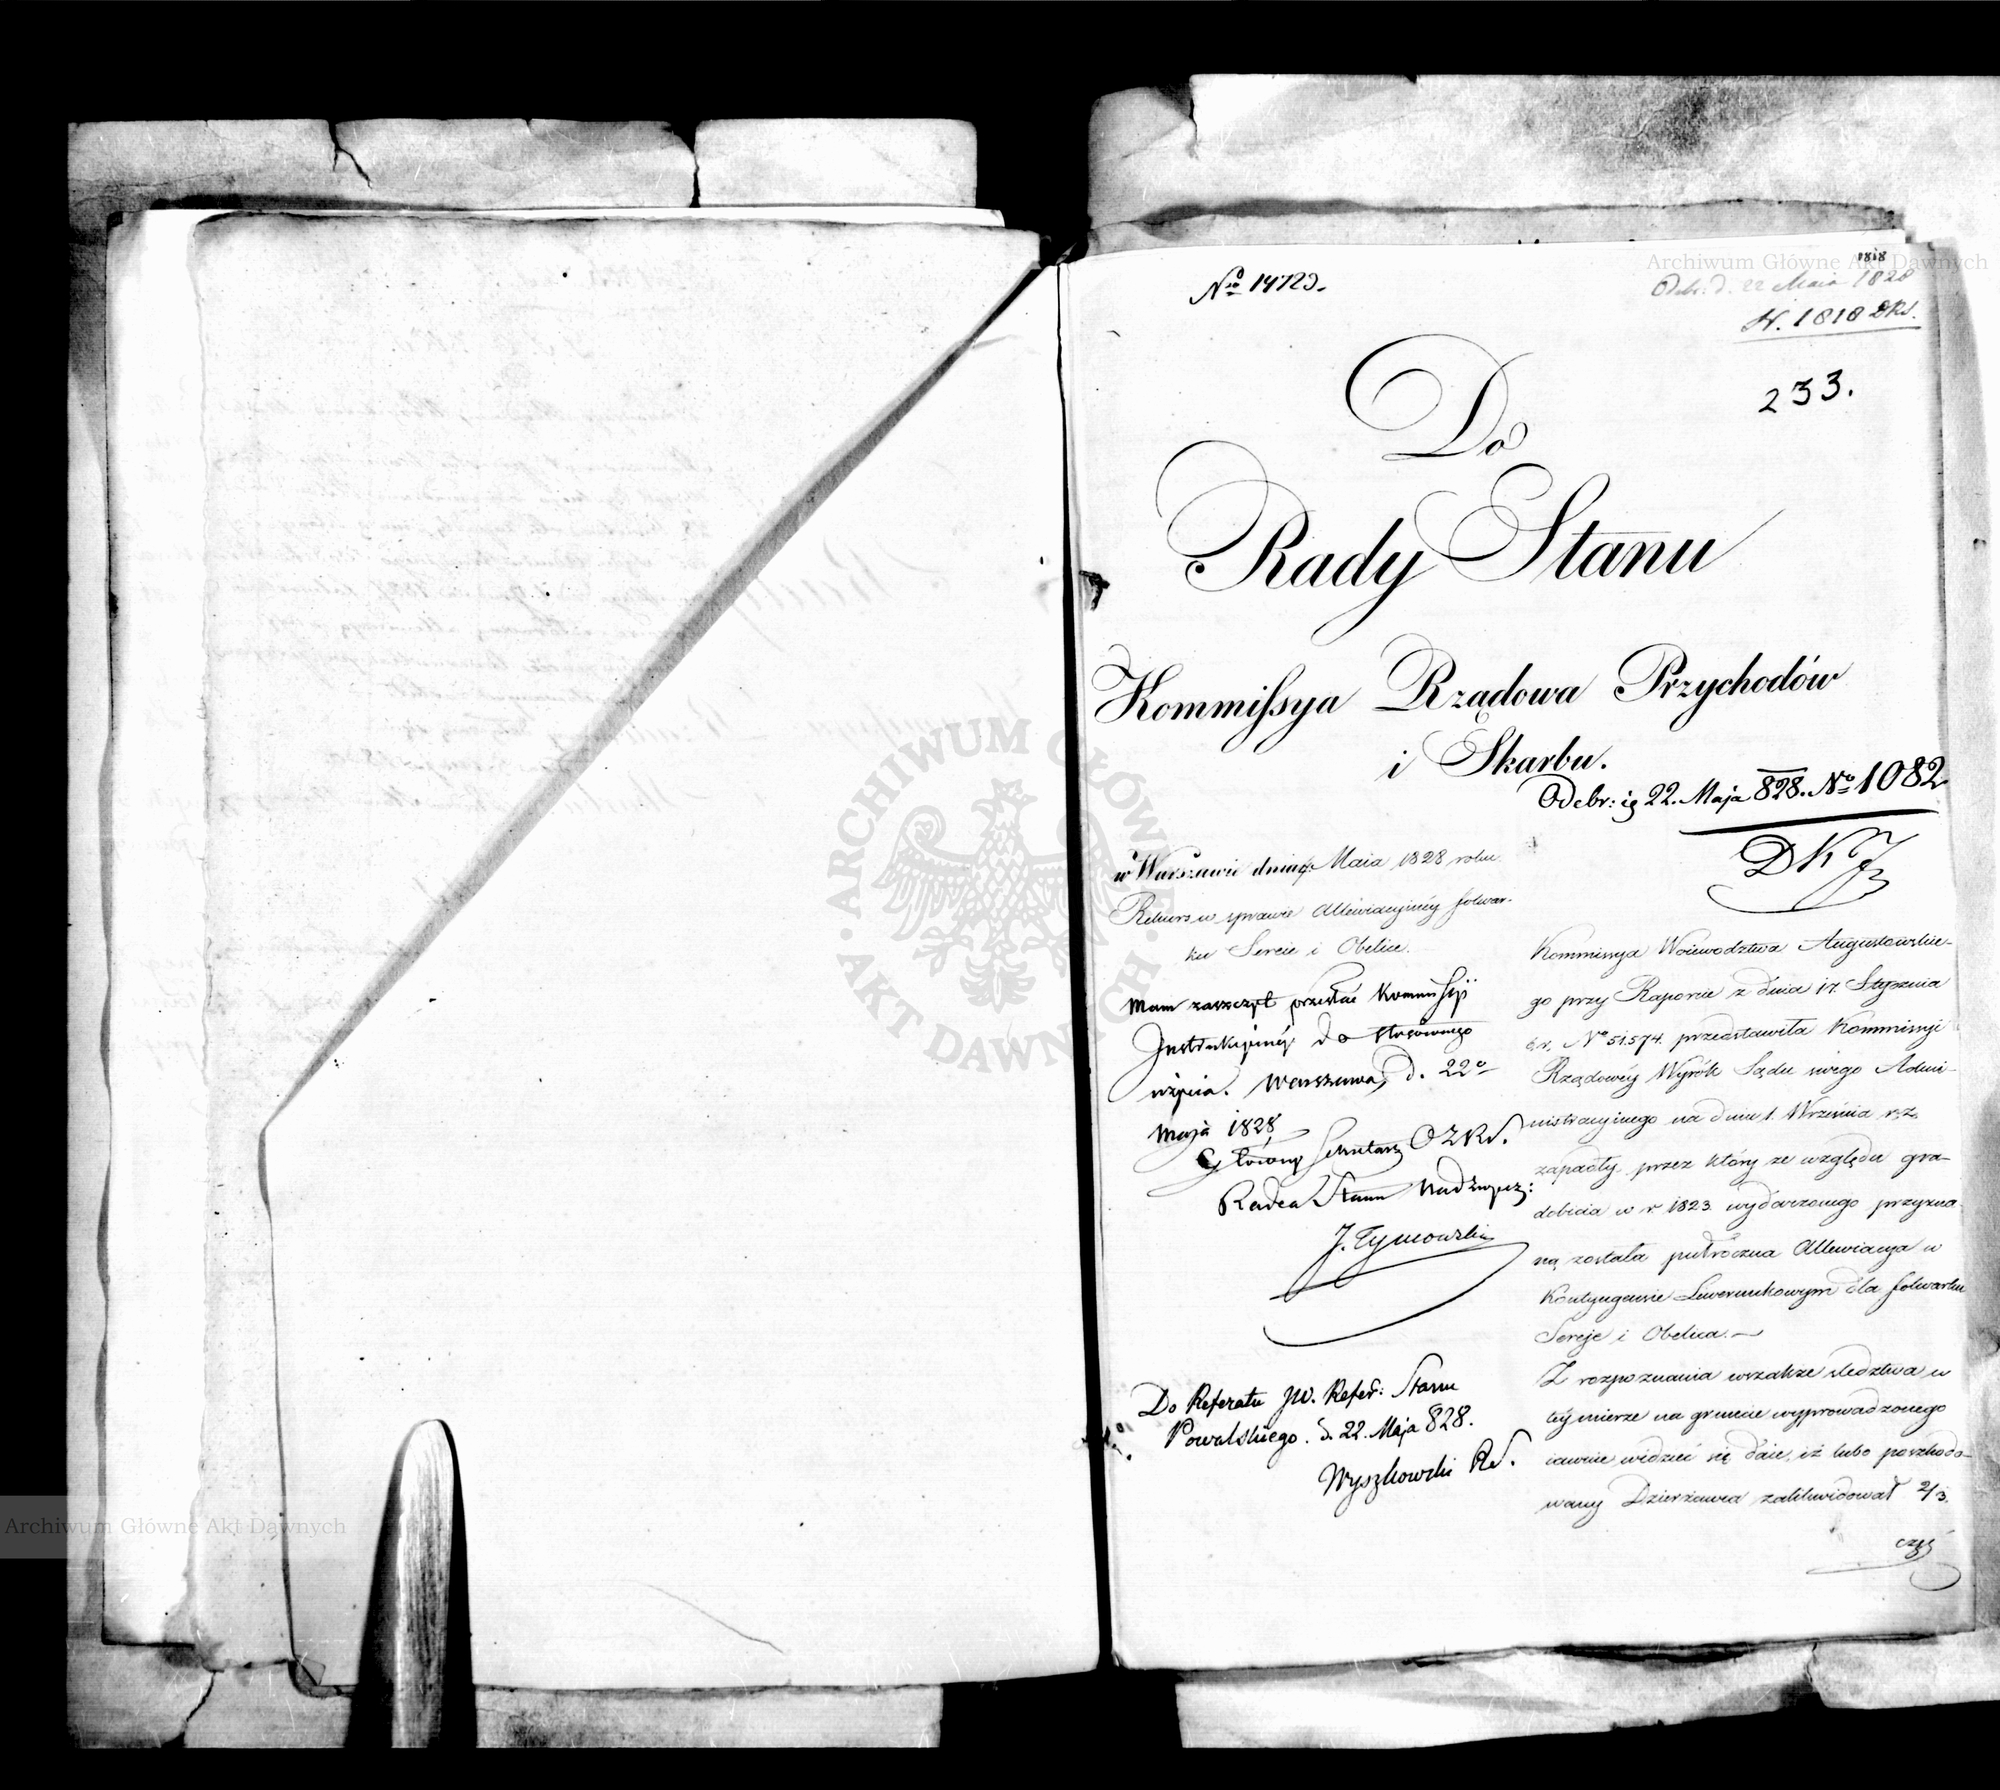 No 14723.
1818
Odebr. d. 22 Maia 1828
N. 1818 DKS.
233.
Do
Rady Stanu
Kommissya Rządowa Przychodów
i Skarbu.
Odebr: ig 22. Maja 828. No 1082
DKJ
w Warszawie dnia Maia 1828 roku.
Rekurs w sprawie Allewiacyinéy folwar-
ku Sereie i Obelice.
Mam zaszczyt przesłać Kommissyi
Instrukcyinéy do stosownego
użycia. Warszawa, d. 22o
Maja 1828
Główny Sekretarz
Radca Stanu Nadzwycz:
J. Tymowski
Do Referatu JW. Refer: Stanu
Powalskiego. d. 22. Maja 828.
Wyszkowski RS.
Kommissya Woiewodztwa Augustowskie-
go przy Raporcie z dnia 17 Stycznia
b.r. No 51,574. przedstawiła Kommissyi
Rządowéy Wyrók Sądu swego Admi-
nistracyinego na dniu 1. Września r.z.
zapadły, przez który ze względu gra-
dobicia w r. 1823. wydarzonego przyzna-
ną została półroczna Allewiacya w
Kontyngensie Liwerunkowym dla folwarku
Sereje i Obelica.—
Z rozpoznania wszakże śledztwa w
téy mierze na gruncie wyprowadzonego
iawnie widzieć się daie, iż lubo poszkodo-
wany Dzierżawca zalikwidował 2/3.
częś
ARCHIWUM GŁÓWNE AKT DAWNYCH
Archiwum Główne Akt Dawnych
Archiwum Główne Akt Dawnych